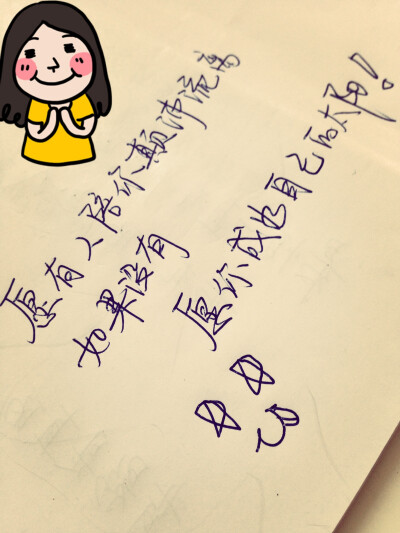 愿有人陪你颠沛流离
如果没有
愿你成为自己的太阳!